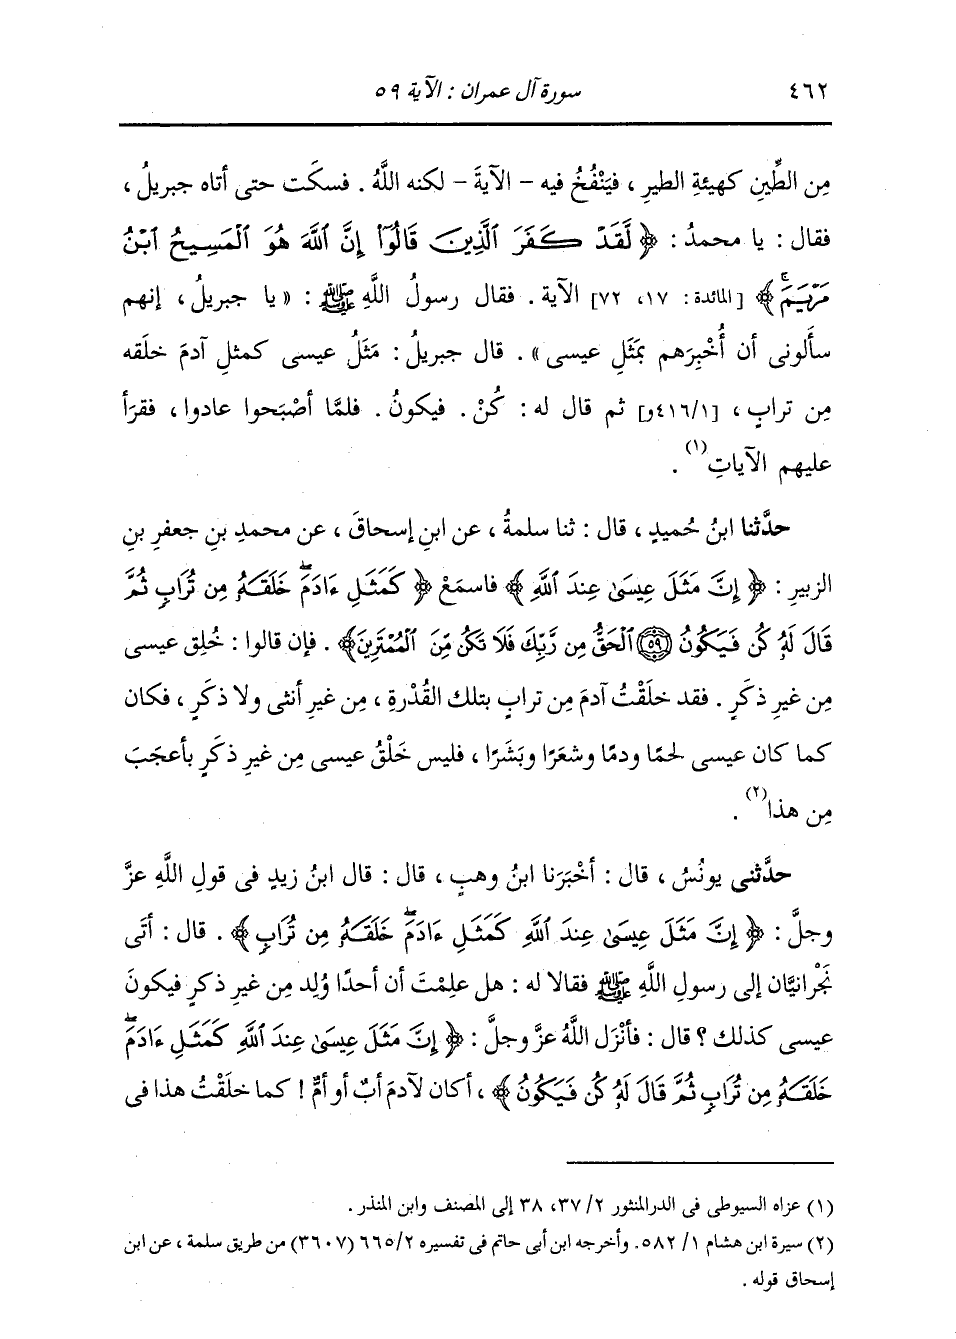 ٤٦٢ سورة آل عمران : الآية ٥٩
مِن الطِّينِ كهيئةِ الطيرِ ، فيَنْفُخُ فيه - الآيةَ - لكنه اللَّهُ . فسكَت حتى أتاه جبريلُ ،
فقال : يا محمدُ : ﴿ لَّقَدْ كَفَرَ ٱلَّذِينَ قَالُوٓا۟ إِنَّ ٱللَّهَ هُوَ ٱلْمَسِيحُ ٱبْنُ
مَرْيَمَ ﴾ [المائدة : ١٧، ٧٢] الآية . فقال رسولُ اللَّهِ ﷺ : « يا جبريلُ ، إنهم
سأَلونى أن أُخْبِرَهم بمَثَلِ عيسى » . قال جبريلُ : مَثَلُ عيسى كمثلِ آدمَ خلَقه
مِن ترابٍ ، [٤١٦/١و] ثم قال له : كُنْ . فيكونُ . فلمَّا أصْبَحوا عادوا ، فقرَأ
عليهم الآياتِ(١) .
حدَّثنا ابنُ حُميدٍ ، قال : ثنا سلمةُ ، عن ابنِ إسحاقَ ، عن محمدِ بنِ جعفرِ بنِ
الزبيرِ : ﴿ إِنَّ مَثَلَ عِيسَىٰ عِندَ ٱللَّهِ ﴾ فاسمَعْ ﴿ كَمَثَلِ ءَادَمَ ۖ خَلَقَهُۥ مِن تُرَابٍ ثُمَّ
قَالَ لَهُۥ كُن فَيَكُونُ ﴿٥٩﴾ ٱلْحَقُّ مِن رَّبِّكَ فَلَا تَكُن مِّنَ ٱلْمُمْتَرِينَ ﴾ . فإن قالوا : خُلِق عيسى
مِن غيرِ ذكَرٍ . فقد خلَقْتُ آدمَ مِن ترابٍ بتلك القُدْرةِ ، مِن غيرِ أنثى ولا ذكَرٍ ، فكان
كما كان عيسى لحمًا ودمًا وشعَرًا وبَشَرًا ، فليس خَلْقُ عيسى مِن غيرِ ذكَرٍ بأعجَبَ
مِن هذا(٢) .
حدَّثنى يونُسُ ، قال : أخْبَرَنا ابنُ وهبٍ ، قال : قال ابنُ زيدٍ فى قولِ اللَّهِ عزَّ
وجلَّ : ﴿ إِنَّ مَثَلَ عِيسَىٰ عِندَ ٱللَّهِ كَمَثَلِ ءَادَمَ ۖ خَلَقَهُۥ مِن تُرَابٍ ﴾ . قال : أتَى
نَجْرانيَّان إلى رسولِ اللَّهِ ﷺ فقالا له : هل علِمْتَ أن أحدًا وُلِد مِن غيرِ ذكرٍ فيكونَ
عيسى كذلك ؟ قال : فأنْزَل اللَّهُ عزَّ وجلَّ : ﴿ إِنَّ مَثَلَ عِيسَىٰ عِندَ ٱللَّهِ كَمَثَلِ ءَادَمَ ۖ
خَلَقَهُۥ مِن تُرَابٍ ثُمَّ قَالَ لَهُۥ كُن فَيَكُونُ ﴾ ، أكان لآدمَ أبٌ أو أمٌّ ! كما خلَقْتُ هذا فى
(١) عزاه السيوطى فى الدر المنثور ٢/ ٣٧، ٣٨ إلى المصنف وابن المنذر .
(٢) سيرة ابن هشام ١/ ٥٨٢. وأخرجه ابن أبى حاتم فى تفسيره ٦٦٥/٢ (٣٦٠٧) من طريق سلمة ، عن ابن
إسحاق قوله .